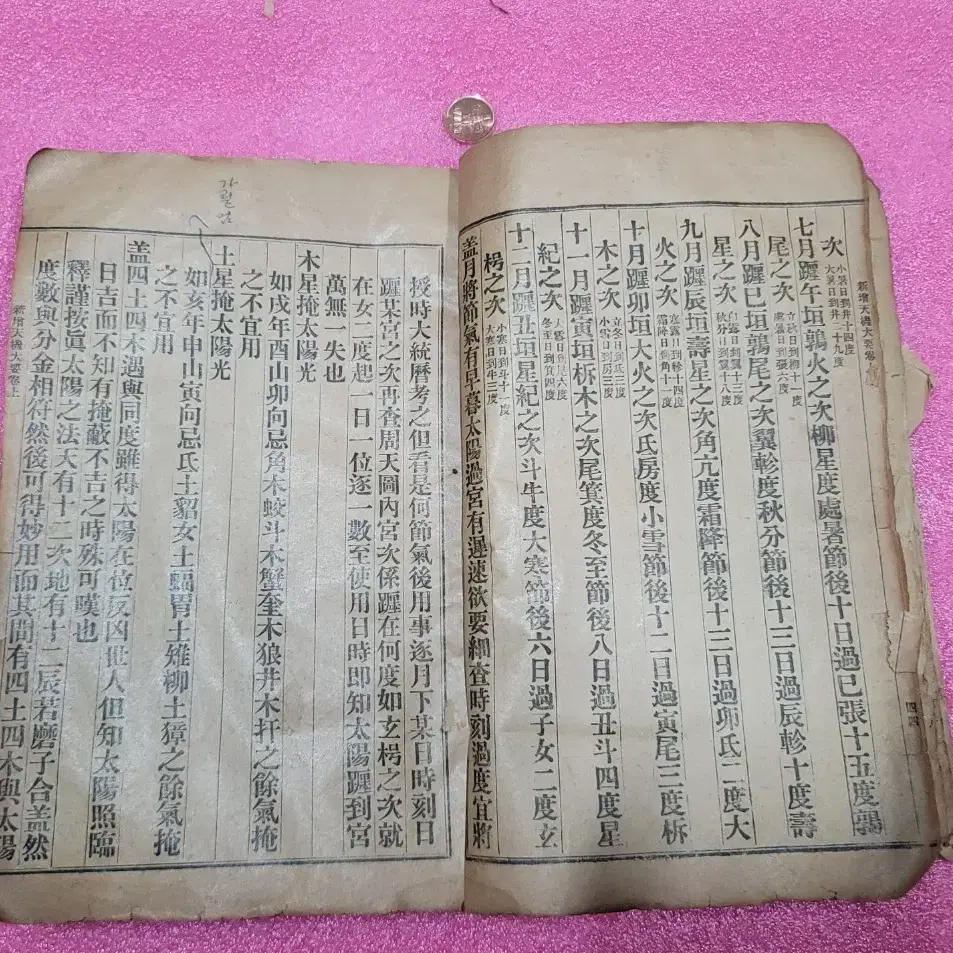 新增天機大要卷
四四
次 小暑日到井十四度
大暑日到井二十九度
七月躔午垣鶉火之次柳星度處暑節後十日過巳張十五度鶉
尾之次 立秋日到柳十度
處暑日到張六度
八月躔巳垣鶉尾之次翼軫度秋分節後十三日過辰軫十度壽
星之次 白露日到翼三度
秋分日到翼十度
九月躔辰垣壽星之次角亢度霜降節後十三日過卯氐二度大
火之次 寒露日到軫十四度
霜降日到角十一度
十月躔卯垣大火之次氐房度小雪節後十二日過寅尾三度析
木之次 立冬日到氐三度
小雪日到房三度
十一月躔寅垣析木之次尾箕度冬至節後八日過丑斗四度星
紀之次 大雪日到尾八度
冬至日到箕四度
十二月躔丑垣星紀之次斗牛度大寒節後六日過子女二度玄
枵之次 小寒日到斗十一度
大寒日到牛三度
盖月將節氣有早暮太陽過宮有遲速欲要細查時刻過度宜將
授時大統曆考之但看是何節氣後用事逐月下某日時刻日
躔某宮之次再查周天圖內宮次係躔在何度如玄枵之次就
在女二度起一日一位逐一數至使用日時即知太陽躔到宮
萬無一失也
木星掩太陽光
如戌年酉山卯向忌角木蛟斗木蟹奎木狼井木犴之餘氣掩
之不宜用
土星掩太陽光
如亥年申山寅向忌氐土貉女土蝠胃土雉柳土獐之餘氣掩
之不宜用
盖四土四木遇與同度雖得太陽在位反凶世人但知太陽照臨
日吉而不知有掩蔽不吉之時殊可嘆也
釋謹按眞太陽之法天有十二次地有十二辰若磨子合盖然
度數與分金相符然後可得妙用而其間有四土四木與太陽
新增天機大要卷上